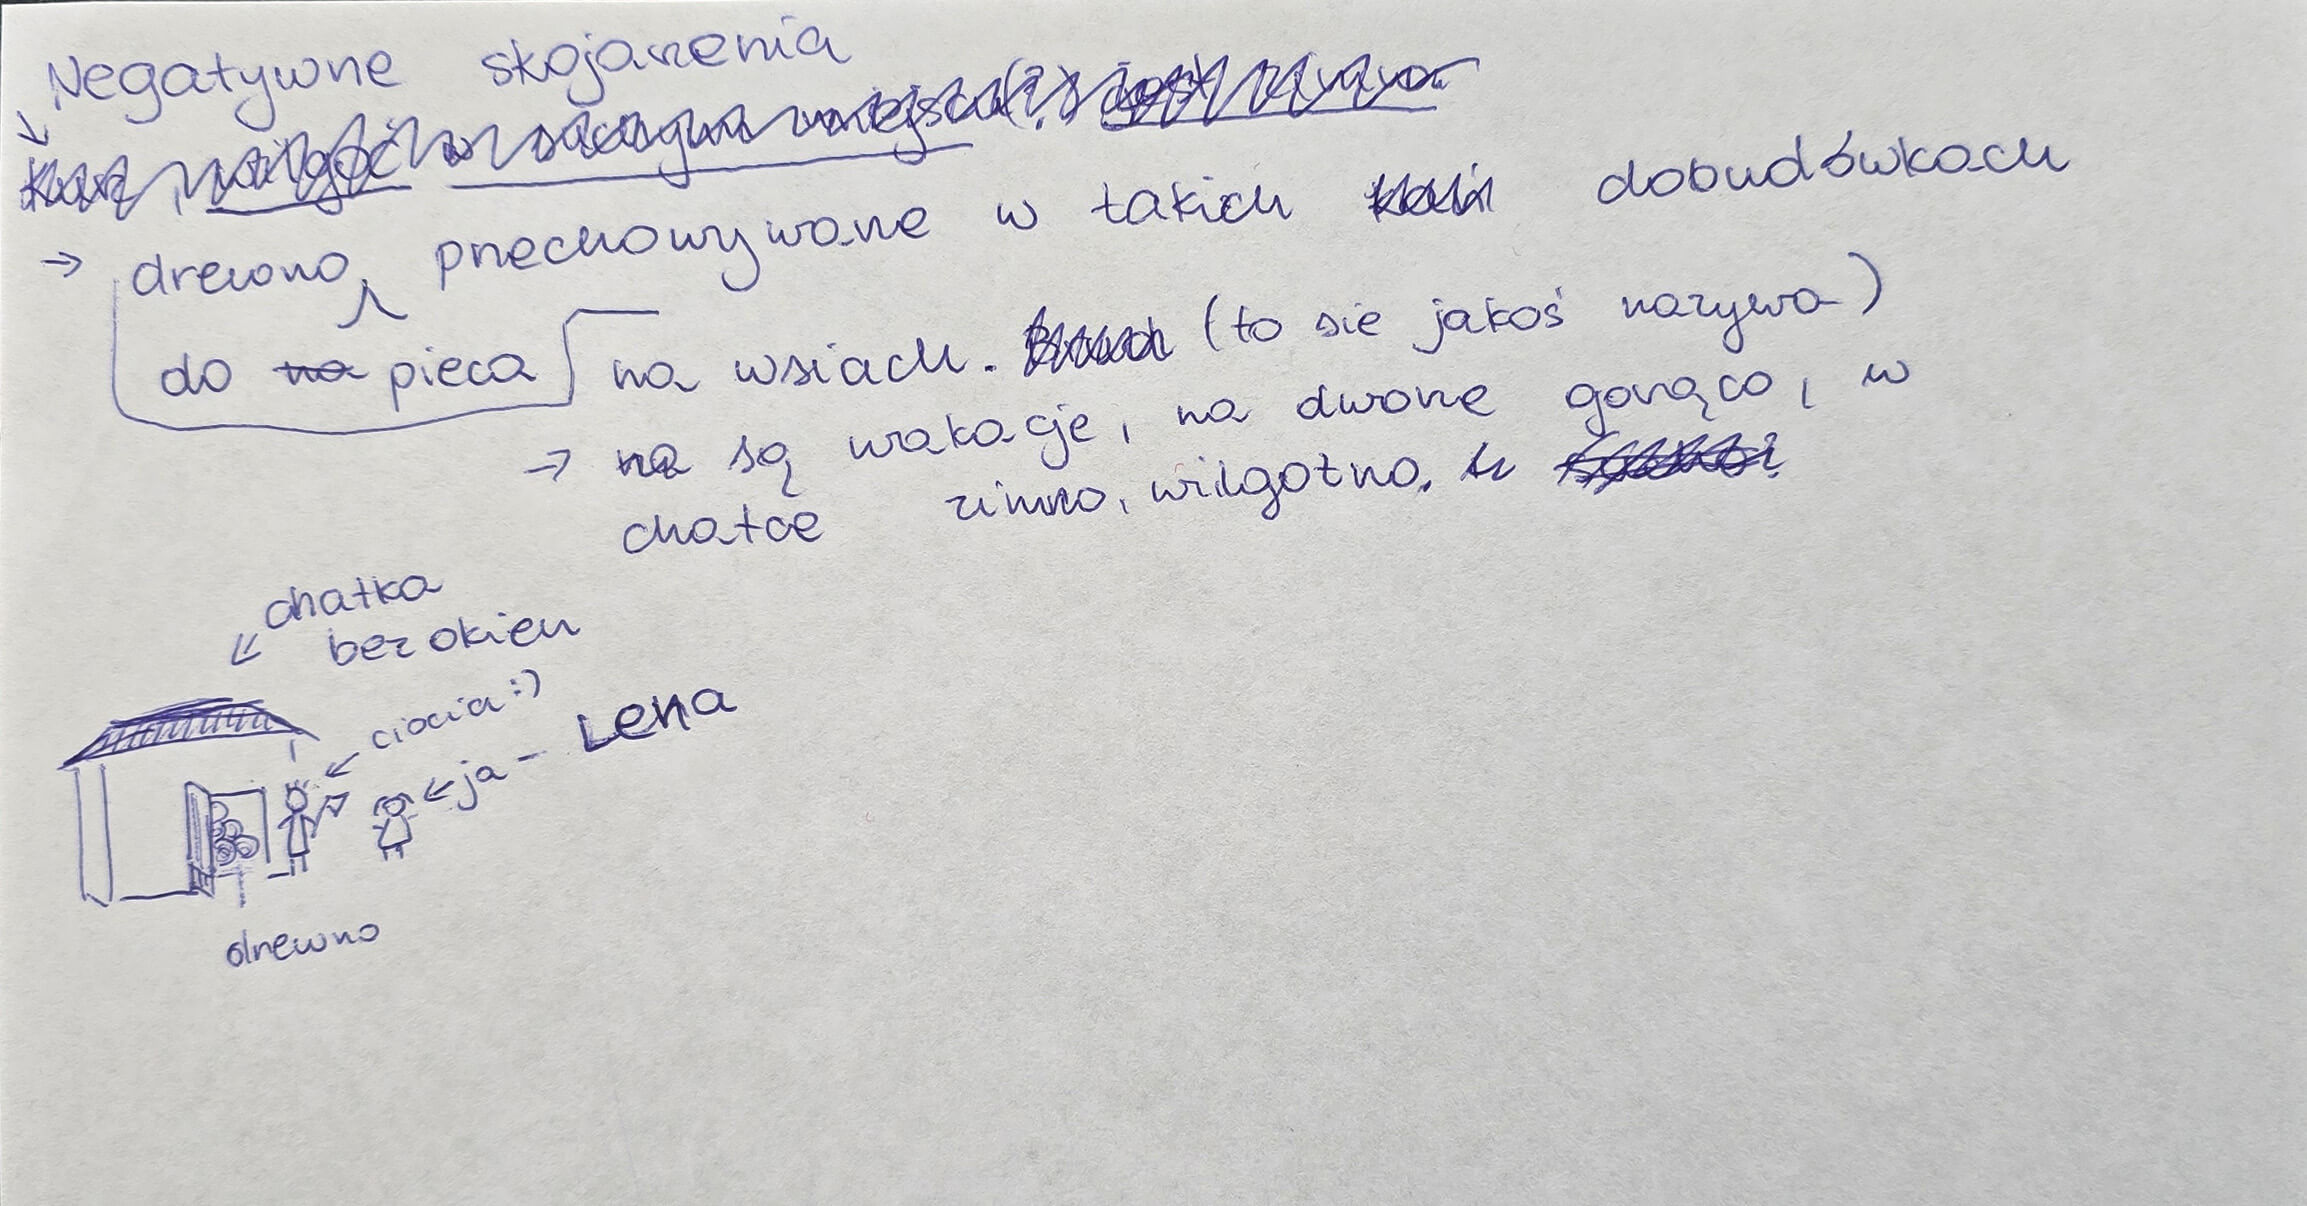 Negatywne skojarzenia
→ drewno przechowywane w takich dobudówkach
do na pieca na wsiach. (to sie jakoś nazywa)
→ są wakacje, na dworze gorąco, w
chatce zimno, wilgotno.
chatka
bez okien
ciocia :)
ja - Lena
drewno